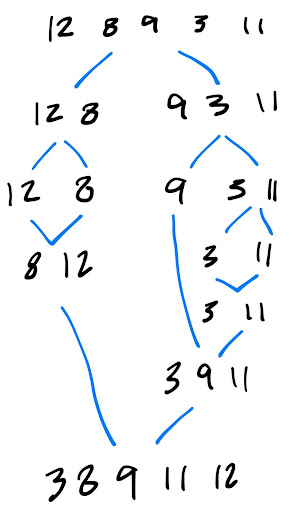 12 8 9 3 11
12 8 9 3 11
12 8 9 3 11
8 12 3 11
3 11
3 9 11
3 8 9 11 12